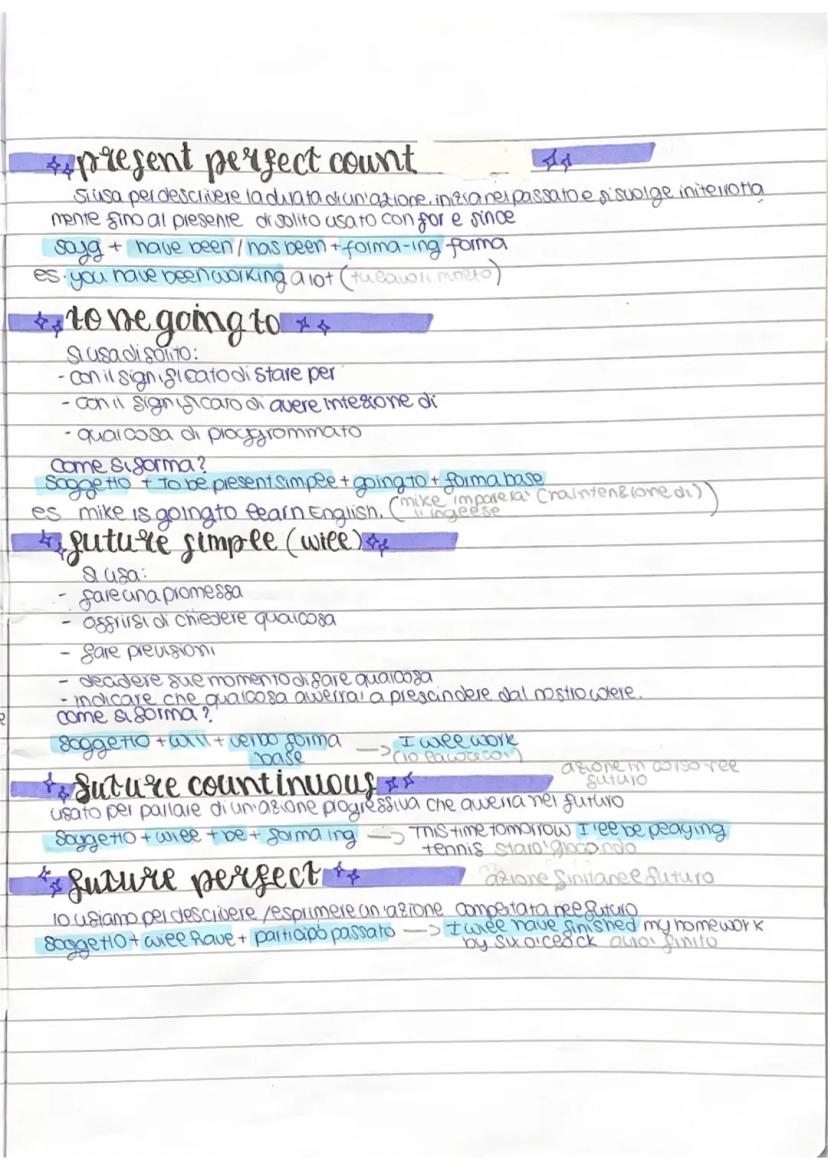 present perfect count
Si usa per descrivere la durata di un'azione, inizia nel passato e si svolge initerrotta
mente fino al presente di solito usato con for e since
sogg + have been / has been + forma-ing forma
es. you have been working a lot (tu lavori molto)
to be going to
Si usa di solito:
- con il significato di stare per
- con il significato di avere intezione di
- qualcosa di proggrommato
Come si forma?
Soggetto + to be present simple + going to + forma base
es mike is going to learn English. (mike imparerà (ha intenzione di)
l'inglese)
future simple (will)
Si usa:
- fare una promessa
- offrirsi di chiedere qualcosa
- fare previsioni
- decidere sul momento di fare qualcosa
- indicare che qualcosa avverra' a prescindere dal nostro volere.
come si forma?
Soggetto + will + verbo forma
base
-> I will work
(io lavorerò)
future countinuous
azione in corso nel
futuro
usato per parlare di un'azione progressiva che avverra nel futuro
Soggetto + will + be + forma ing -> This time tomorrow I'll be playing
tennis staro' giocando
future perfect
azione finita nel futuro
lo usiamo per descrivere / esprimere un'azione completata nel futuro
Soggetto + will have + participo passato -> I will have finished my homework
by six o'clock avrò finito